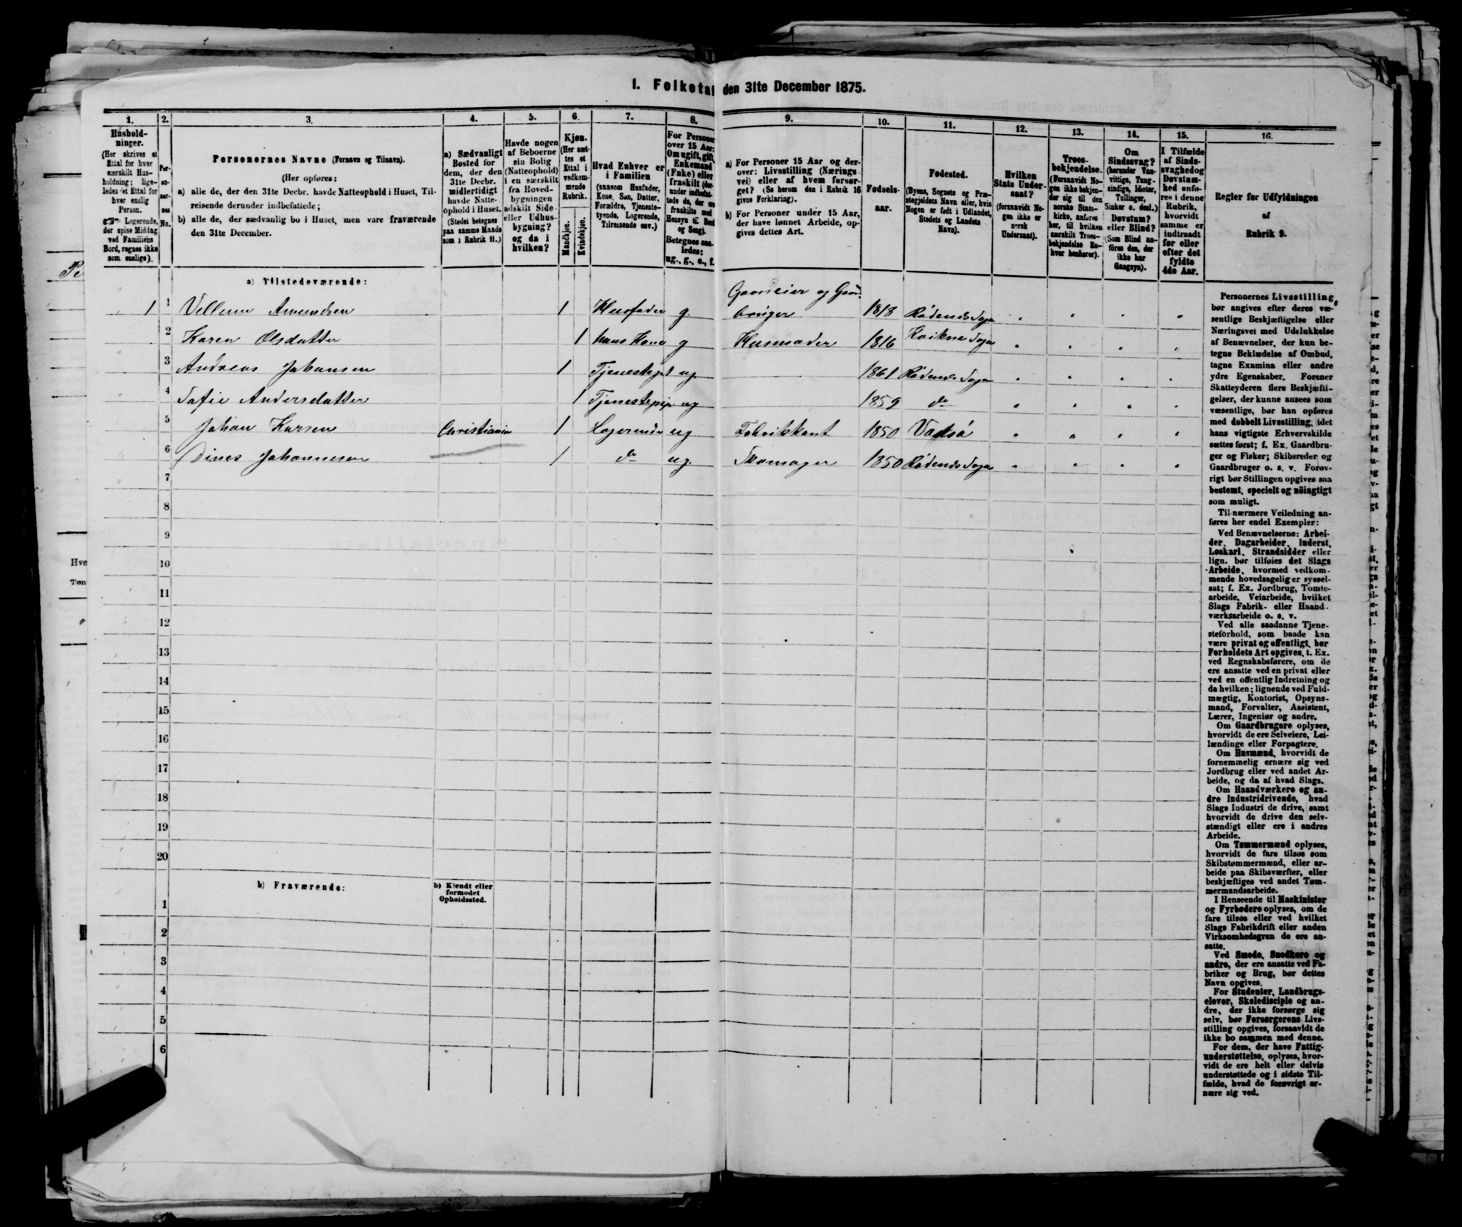 1. Folketæ den 31te December 1875.
1.
Hushold-
ninger.
(Her skrives et
Ettal for hver
særskilt Hus-
holdning; lige-
ledes et Ettal for
hver enslig
Person.
Logerende,
der spise Middag
ved Familiens
Bord, regnes ikke
som enslige).
2.
Per-
so-
ner-
nes
No.
3.
Personernes Navne (Fornavn og Tilnavn).
(Her opføres:
a) alle de, der den 31te Decbr. havde Natteophold i Huset, Til-
reisende derunder indbefattede;
b) alle de, der sædvanlig bo i Huset, men vare fraværende
den 31te December.
4.
a) Sædvanligt
Bosted for
dem, der den
31te Decbr.
midlertidigt
havde Natte-
ophold i Huset.
(Stedet betegnes
paa samme Maade
som i Rubrik 11.)
5.
Havde nogen
af Beboerne
sin Bolig
(Natteophold)
i en særskilt
fra Hoved-
bygningen
adskilt Side-
eller Udhus-
bygning?
og da i
hvilken?
6.
Kjøn.
(Her sæt-
tes et
Ettal i
vedkom-
mende
Rubrik.
Mandkjøn.
Kvindekjøn.
7.
Hvad Enhver er
i Familien
(saasom Husfader,
Kone, Søn, Datter,
Forældre, Tjeneste-
tyende, Logerende,
Tilreisende osv.)
8.
For Personer
over 15 Aar:
Om ugift, gift,
Enkemand
(Enke) eller
fraskilt
Betegnes saa-
ledes:
ug., g., e., f.
9.
a) For Personer 15 Aar og der-
over: Livsstilling (Nærings-
vei) eller af hvem forsør-
get? (Se herom den i Rubrik 16
givne Forklaring).
b) For Personer under 15 Aar,
der have lønnet Arbeide, op-
gives dettes Art.
10.
Fødsels-
aar.
11.
Fødested.
(Byens, Sognets og Præ-
stegjeldets Navn eller, hvis
Nogen er født i Udlandet,
Stedets og Landets
Navn).
12.
Hvilken
Stats Under-
saat?
(forsaavidt No-
gen ikke er
norsk
Undersaat).
13.
Troes-
bekjendelse.
(Forsaavidt No-
gen ikke bekjen-
der sig til den
norske Stats-
kirke, anføres
her, til hvilken
særskilt Troes-
bekjendelse En-
hver henhører).
14.
Om
Sindssvag?
(herunder Van-
vittige, Tung-
sindige, Idioter,
Tullinger,
Sinker o. desl.)
Døvstum?
eller Blind?
(Som Blind an-
føres den, der
ikke har
Gangsyn).
15.
I Tilfælde
af Sinds-
svaghed og
Døvstum-
hed anfø-
res i denne
Rubrik,
hvorvidt
samme er
indtraadt
før eller
efter det
fyldte
4de Aar.
16.
Regler for Udfyldningen
af
Rubrik 9.
a) Tilstedeværende:
Gaardeier og Gaard-
1 1 Vellum Amundsen 1 Husfader g bruger 1818 Rødends Sogn
2 Karen Olsdatter 1 hans Kone g Husmoder 1816 Sogn
3 Andreas Johansen 1 ug 1861 Rødends Sogn
4 Sofie Andersdatter 1 ug 1859 do
5 Johan Karsen Christiania 1 Logerende ug Fabrikkant 1850 Vadsø
6 Dines Johannesen 1 do ug. Skomager 1850 Rødends Sogn
7
8
9
10
11
12
13
14
15
16
17
18
19
20
b) Fraværende:
b) Kjendt eller
formodet
Opholdssted.
1
2
3
4
5
6
Personernes Livsstilling
bør angives efter deres væ-
sentlige Beskjæftigelse eller
Næringsvei med Udelukkelse
af Benævnelser, der kun be-
tegne Beklædelse af Ombud,
tagne Examina eller andre
ydre Egenskaber. Forener
Skatteyderen flere Beskjæfti-
gelser, der kunne ansees som
væsentlige, bør han opføres
med dobbelt Livsstilling, idet
hans vigtigste Erhvervskilde
sættes først; f. Ex. Gaardbru-
ger og Fisker; Skibsreder og
Gaardbruger o. s. v. Forøv-
rigt bør Stillingen opgives saa
bestemt, specielt og nøiagtigt
som muligt.
Til nærmere Veiledning an-
føres her endel Exempler:
Ved Benævnelserne: Arbei-
der, Dagarbeider, Inderst,
Løskarl, Strandsidder eller
lign. bør tilføies det Slags
Arbeide, hvormed vedkom-
mende hovedsagelig er syssel-
sat; f. Ex. Jordbrug, Tomte-
arbeide, Veiarbeide, hvilket
Slags Fabrik- eller Haand-
værksarbeide o. s. v.
Ved alle saadanne Tjene-
steforhold, som baade kan
være privat og offentligt, bør
Forholdets Art opgives, f. Ex.
ved Regnskabsførere, om de
ere ansatte ved en privat eller
ved en offentlig Indretning og
da hvilken; lignende ved Fuld-
mægtig, Kontorist, Opsyns-
mand, Forvalter, Assistent,
Lærer, Ingeniør og andre.
Om Gaardbrugere oplyses,
hvorvidt de ere Selveiere, Lei-
lændinge eller Forpagtere.
Om Husmænd, hvorvidt de
fornemmelig ernære sig ved
Jordbrug eller ved andet Ar-
beide, og da af hvad Slags.
Om Haandværkere og an-
dre Industridrivende, hvad
Slags Industri de drive, samt
hvorvidt de drive den selv-
stændigt eller ere i andres
Arbeide.
Om Tømmermænd oplyses,
hvorvidt de fare tilsøs som
Skibstømmermænd, eller ar-
beide paa Skibsværfter, eller
beskjæftiges ved andet Tøm-
mermandsarbeide.
I Henseende til Maskinister
og Fyrbødere oplyses, om de
fare tilsøs eller ved hvilket
Slags Fabrikdrift eller anden
Virksomhedsgren de ere an-
satte.
Ved Smede, Snedkere og
andre, der ere ansatte ved Fa-
briker og Brug, bør dettes
Navn opgives.
For Studenter, Landbrugs-
elever, Skoledisciple og an-
dre, der ikke forsørge sig
selv, bør Forsørgerens Livs-
stilling opgives, forsaavidt de
ikke bo sammen med denne.
For dem, der have Fattig-
understøttelse, oplyses, hvor-
vidt de ere helt eller delvis
understøttede og i sidste Til-
fælde, hvad de forøvrigt er-
nære sig ved.